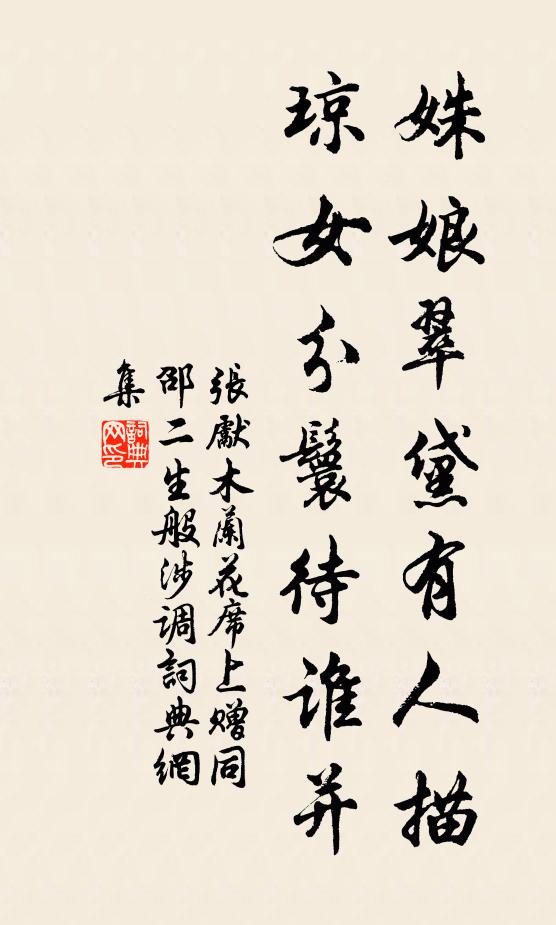 姝娘翠黛有人描
琼女分鬟待谁并
張獻木蘭花席上贈同
邵二生般涉调詞典網
集
詞典网印